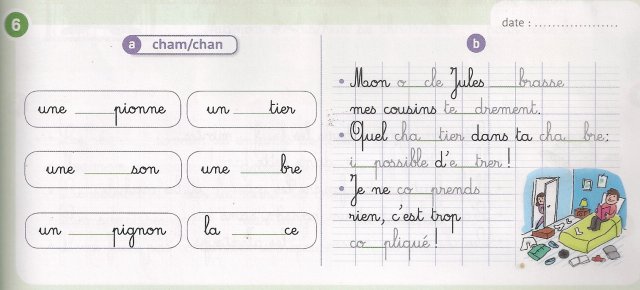 6
date : ...................
a cham/chan
b
une ______pionne
un ______tier
une ______son
une ______bre
un ______pignon
la ______ce
• Mon o__cle Jules ___brasse
mes cousins te__drement.
• Quel cha__tier dans ta cha__bre :
i__possible d'e__trer !
• Je ne co__prends
rien, c'est trop
co__pliqué !